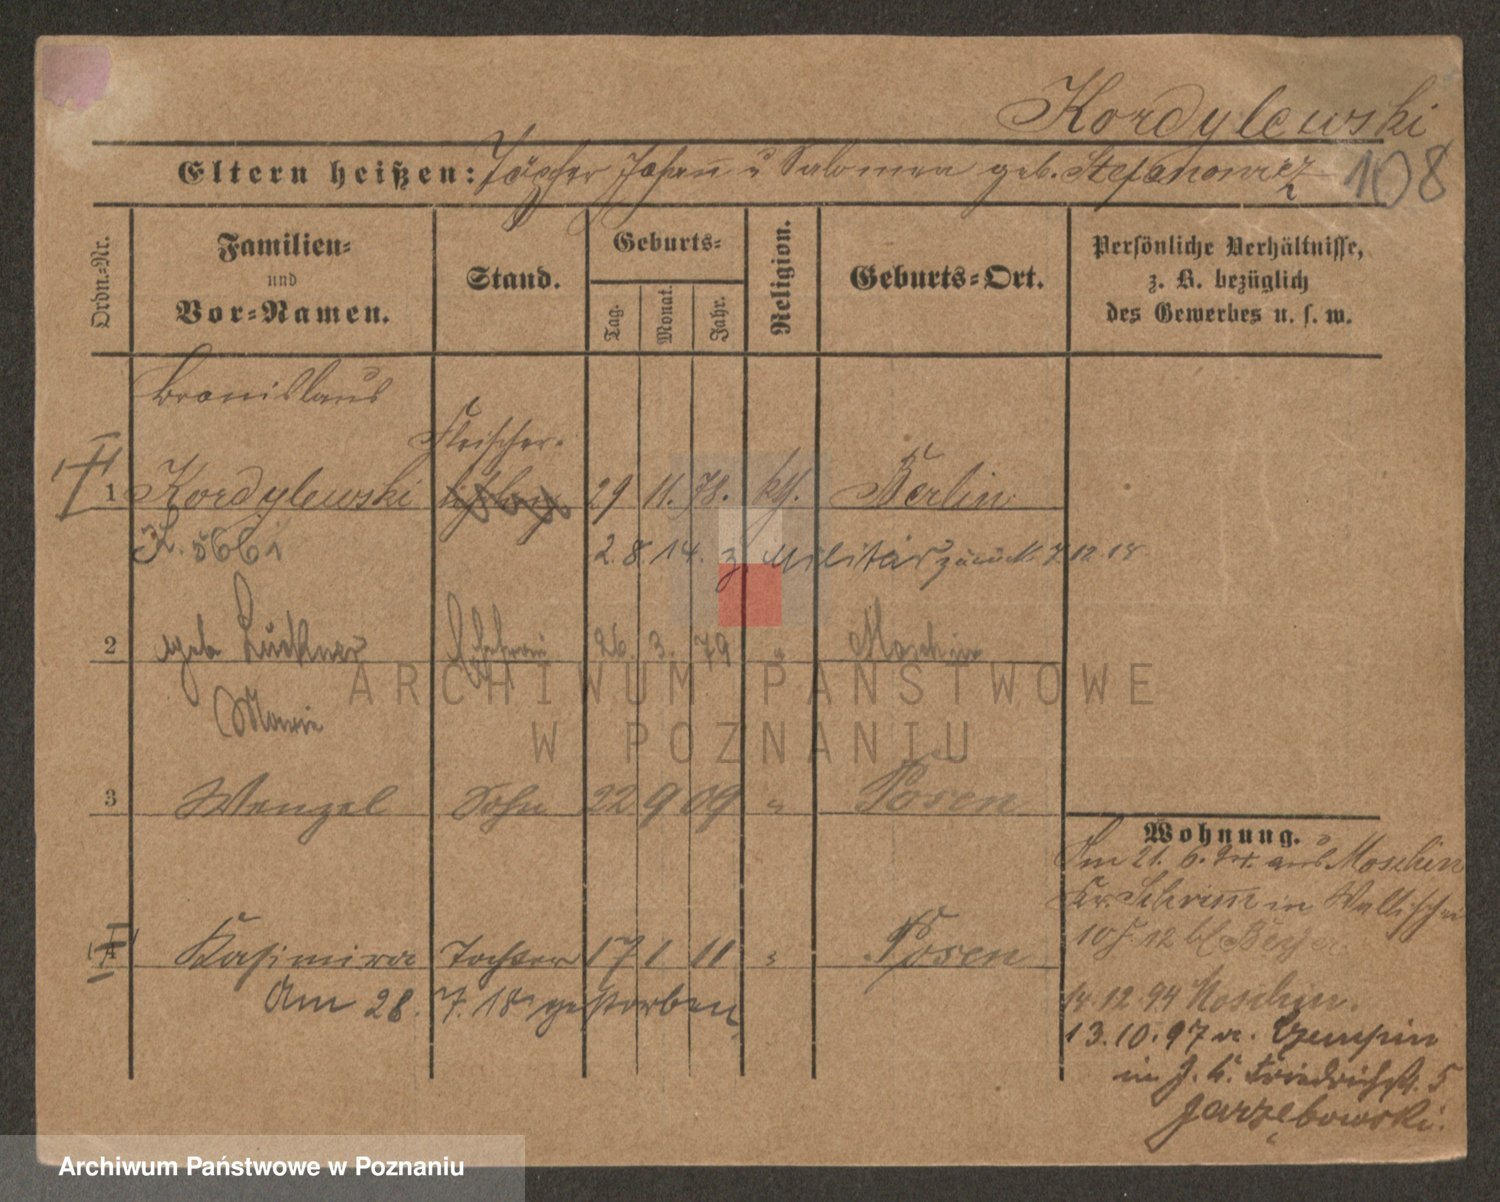 Kordylewski
Eltern heißen: Töpfer Johann u Salomea geb. Stefanowicz 108
Ordn.-Nr.
Familien-
und
Vor-Namen.
Stand.
Geburts-
Tag.
Monat.
Jahr.
Religion.
Geburts-Ort.
Persönliche Verhältnisse,
z. B. bezüglich
des Gewerbes u. s. w.
Bronislaus
Fleischer
1 Kordylewski 29 11. 78. kth. Berlin
K. 5661
2. 8. 14. z Militär zurück 7.12.18
2 geb. Lückner Ehefrau 26. 3. 79 " Moschin
Marie
3 Wenzel Sohn 22 9 09 " Posen
Wohnung.
Am 21. 6. aus Moschin
Kr. Schrimm in Wallischei
10 J. 12 bl
4 Kasimira Tochter 17 1 11 " Posen
Am 28. 7. 18 gestorben
14.12.94 Moschin.
13.10.97 v. Czempin
in J. b. Friedrichst. 5
Jarzębowski.
ARCHIWUM PAŃSTWOWE
W POZNANIU
Archiwum Państwowe w Poznaniu